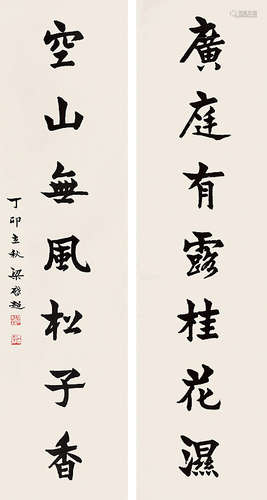 廣庭有露桂花濕
空山無風松子香
丁卯立秋 梁啓超